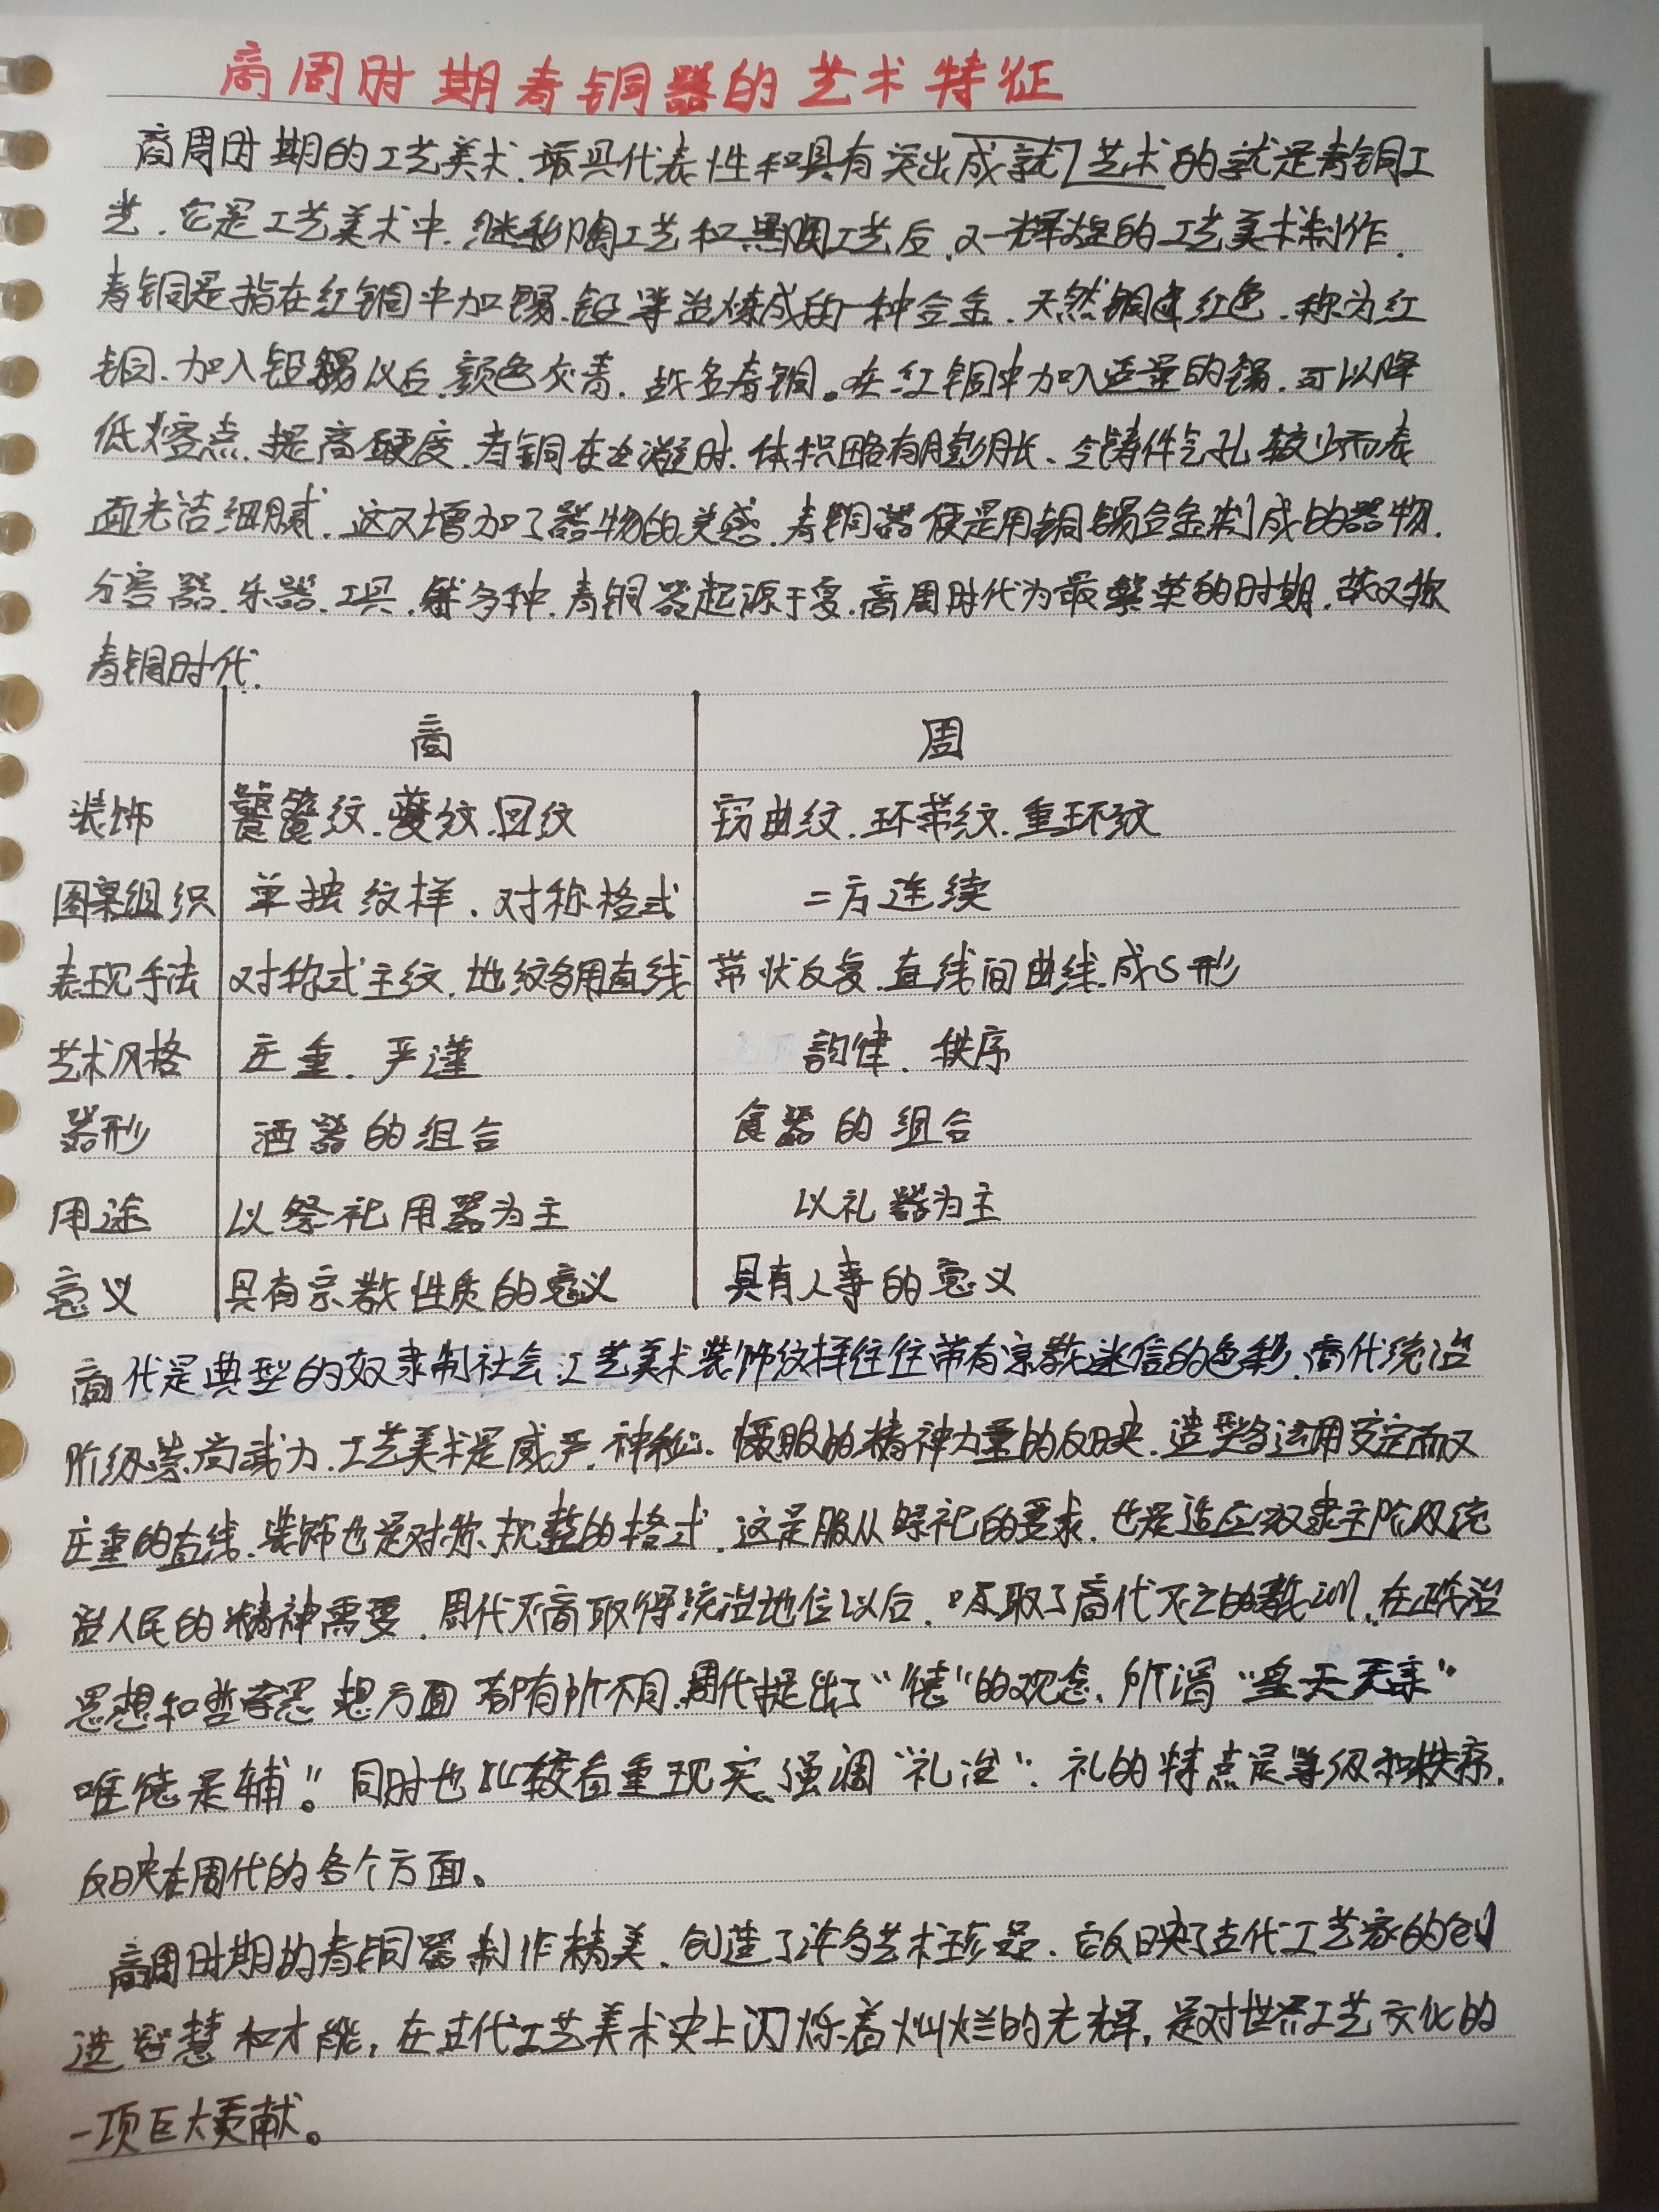 商周时期青铜器的艺术特征
商周时期的工艺美术.最具代表性和具有突出成就艺术的就是青铜工
艺.它是工艺美术中.继彩陶工艺和黑陶工艺后.又一辉煌的工艺美术制作.
青铜是指在红铜中加锡.铅等冶炼成的一种合金.天然铜呈红色.称为红
铜.加入铅锡以后.颜色灰青.故名青铜。在红铜中加入适量的锡.可以降
低熔点.提高硬度.青铜在凝时.体积略有膨胀、令铸件气孔较少而表
面光洁细腻.这又增加了器物的美感.青铜器便是用铜锡合金制成的器物.
分容器.乐器.工具.等多种.青铜器起源于夏.商周时代为最繁荣的时期.故又称
青铜时代.
商 周
装饰 饕餮纹.夔纹.回纹 窃曲纹.环带纹.重环纹
图案组织 单独纹样.对称格式 二方连续
表现手法 对称式主纹.地纹多用直线 带状反复.直线间曲线.成S形
艺术风格 庄重.严谨 韵律.秩序
器形 酒器的组合 食器的组合
用途 以祭祀用器为主 以礼器为主
意义 具有宗教性质的意义 具有人事的意义
商代是典型的奴隶制社会.工艺美术装饰纹样往往带有宗教迷信的色彩.商代统治
阶级崇尚武力.工艺美术是威严.神秘.慑服的精神力量的反映.造型多运用安定而又
庄重的直线.装饰也是对称.规整的格式.这是服从祭祀的要求.也是适应奴隶主阶级统
治人民的精神需要.周代灭商取得统治地位以后.吸取了商代灭亡的教训.在政治
思想和哲学思想方面都有所不同.周代提出了“德”的观念.所谓“皇天无亲”
唯德是辅”。同时也比较看重现实、强调“礼治”.礼的特点是等级和秩序.
反映在周代的各个方面。
商周时期的青铜器制作精美.创造了许多艺术珍品.它反映了古代工艺家的创
造智慧和才能,在古代工艺美术史上闪烁着灿烂的光辉,是对世界工艺文化的
一项巨大贡献。